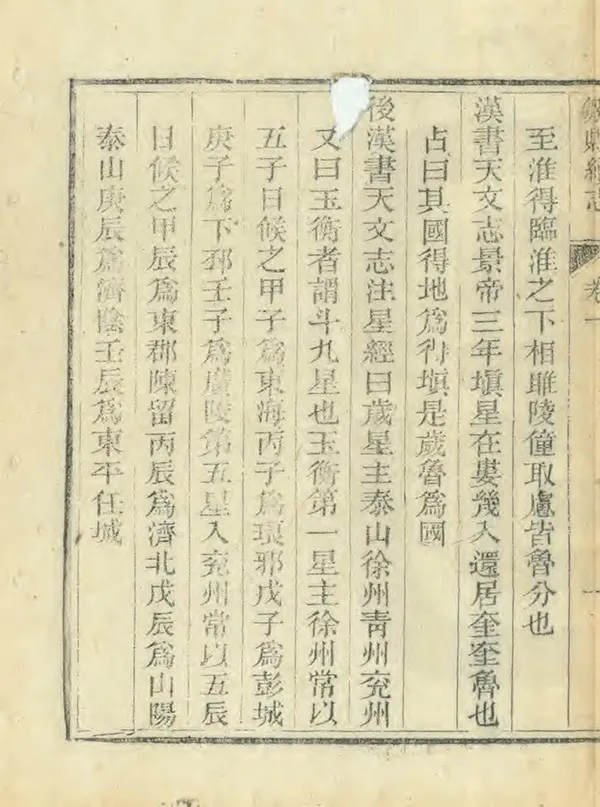 縣經志
卷一
至淮得臨淮之下相雎陵僮取慮皆魯分也
漢書天文志景帝三年塡星在婁幾入還居奎奎魯也
占曰其國得地爲得塡是歲魯爲國
後漢書天文志注星經曰歲星主泰山徐州靑州兖州
又曰玉衡者謂斗九星也玉衡第一星主徐州常以
五子日候之甲子爲東海丙子爲琅邪戊子爲彭城
庚子爲下邳壬子爲廣陵第五星入兖州常以五辰
日候之甲辰爲東郡陳留丙辰爲濟北戊辰爲山陽
泰山庚辰爲濟陰壬辰爲東平任城